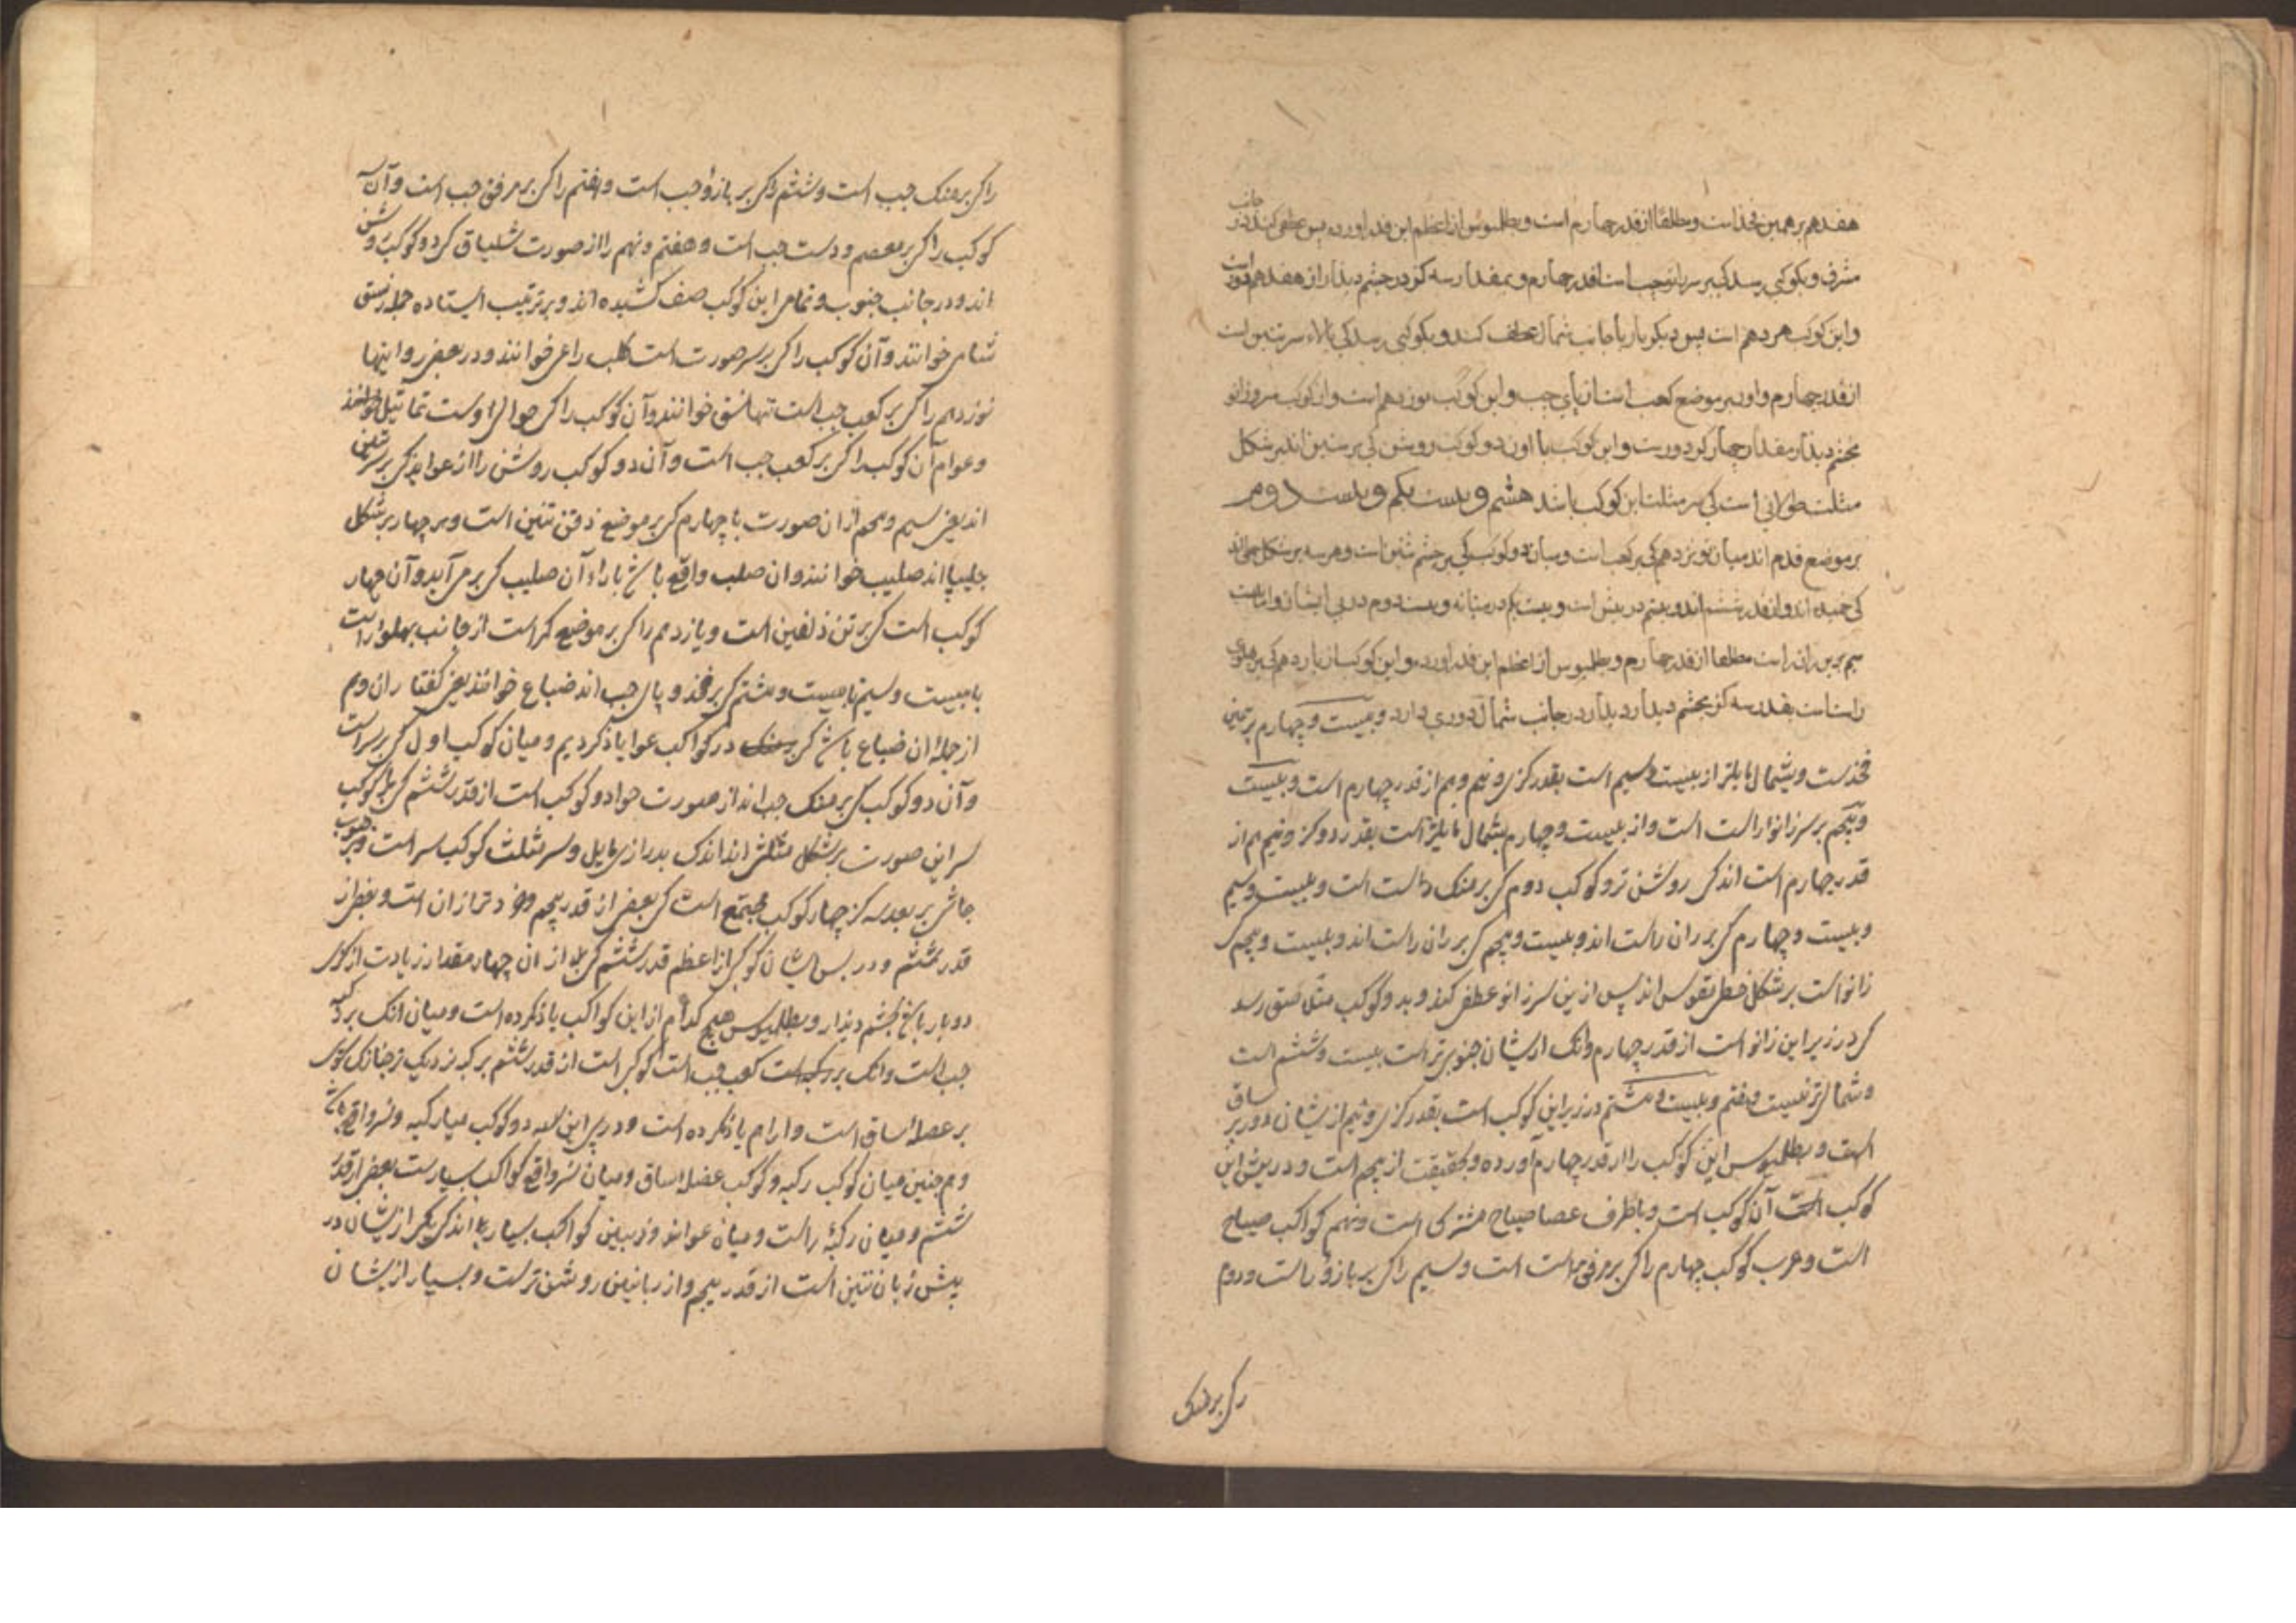 هفدهم بر همین فخذ است و مطلقا از قدر چهارم است و بطلمیوس از اعظم این قدر اورده پس عطفی کند در جانب
مشرق و بکوکبی رسد کی بر سر زانو چپ است از قدر چهارم و بمقدار سه کز در چشم دیدار از هفدهم دور است
و این کوکب هژدهم است پس دیکر بار با جانب شمال عطف کند و بکوکبی رسد کی بالاء سر تنین است
از قدر چهارم و او بر موضع کعب است از پای چپ و این کوکب نوزدهم است و از کوکب سر زانو
بچشم دیدار مقدار چهار کز دورست و این کوکب با اون دو کوکب روشن کی بر سر تنین اند بر شکل
مثلث طولانی است کی سر مثلث این کوکب باشد هشتم و بیست یکم و بیست دوم
بر موضع قدم اند میان نوزدهم کی بر کعب است و میان دو کوکب کی بر چشم تنین است و هر سه بر شکل
کی خمیده اند و از قدر ششم اند و بیستم در پیش است و بیست یکم در میانه و بیست دوم در پی ایشان و اما بیست
سیم بر بن ران راست مطلقا از قدر چهارم و بطلمیوس از اعظم این قدر اورده و این کوکب از یازدهم کی بر پهلوی
راست است بقدر سه کز بچشم دیدار در جانب شمال دوری دارد و بیست و چهارم بر همین
فخذست و بشمال مایلتر از بیست و سیم است بقدر کزی و نیم و هم از قدر چهارم است و بیست
و پنجم بر سر زانو راست است و از بیست و چهارم بشمال مایلتر است بقدر دو کز و نیم هم از
قدر چهارم است اندکی روشن تر و کوکب دوم کی بر منک راست است و بیست و سیم
و بیست و چهارم کی بر ران راست اند و بیست و پنجم کی بر ران راست اند و بیست و پنجم کی
زانو است بر شکل خطی مقوس اند پس ازین سر زانو عطفی کند و بدو کوکب مثل متق رسد
کی در زیر این زانو است از قدر چهارم وانک ازیشان جنوبی تر است بیست و ششم است
و شمالی تر بیست و هفتم و بیست و هشتم در زیر این کوکب است بقدر کزی و نیم ازیشان دور بر ساق
است و بطلمیوس این کوکب را از قدر چهارم آورده و بحقیقت از پنجم است و در پیش این
کوکب است آن کوکب است و با طرف عصا صیاح مشترک است و نهم کواکب صیاح
است و عرب کوکب چهارم را کی بر مرفق راست است و سیم را کی بر بازو راست و دوم
را کی بر منک
را کی بر منک چپ است و ششم را کی بر بازو چپ است و هفتم را کی بر مرفق چپ است و آن سه
کوکب را کی بر معصم و دست چپ است و هفتم و نهم را از صورت شلیاق کی دو کوکب روشن
اند و در جانب جنوب و تمامی این کوکب صف کشیده اند و بر ترتیب ایستاده جمله را نسق
شامی خوانند و آن کوکب را کی بر سر صورت است کلب راعی خوانند و در بعضی روایتها
نوزدهم را کی بر کعب چپ است تنها نسق خوانند و آن کوکب را کی حوالی اوست تماثیل خوانند
و عوام آن کوکب را کی بر کعب چپ است و آن دو کوکب روشن را از عوایذ کی بر سر تنین
اند یعنی سیم و پنجم از ان صورت با چهارم کی بر موضع ذقن تنین است و هر چهار بر شکل
چلیپا اند صلیب خوانند و ان صلیب واقع باشد بازاء آن صلیب کی برمی آید و آن چهار
کوکب است کی بر تن ذلفین است و یازدهم را کی بر موضع کمر است از جانب پهلو راست
با بیست و سیم تا بیست و هشتم کی بر فخذ و پای چپ اند ضباع خوانند یعنی کفتاران و هم
از جمله ان ضباع باشد کی در کواکب عوا یاد کردیم و میان کوکب اول کی بر سر است
و آن دو کوکب کی بر منک چپ اند از صورت حوا دو کوکب است از قدر ششم کی با کوکب
سر این صورت بر شکل مثلثی اند اندک بدرازی مایل و سر مثلث کوکب سر است و در جنوب
جاثی بر بعد سه کز چهار کوکب مجتمع است کی بعضی از قدر پنجم و خردتر از ان است و بعضی از
قدر ششم و در پس ایشان کوکبی از اعظم قدر ششم کی بعد از ان چهار مقدار زیادت از کزی
دو بار باشد بچشم دیدار و بطلمیوس هیچ کدام از این کواکب یاد نکرده است و میان انک بر رکبه
چپ است وانک بر کعب چپ است کوکبی است از قدر ششم بر کبه نزدیک تر چنانک کوکبی
بر عضله ساق است و او را هم یاد نکرده است و در پی این سه دو کوکب میان رکبه و نسر واقع باشد
و هم چنین میان کوکب رکبه و کوکب عضله ساق و میان نسر واقع کواکب بسیارست بعضی از قدر
ششم و میان رکبة راست و میان عوائذ و ذیبین کواکب بسیار اند کی یکی ازیشان در
پیش زبان تنین است از قدر پنجم و از ربانیین روشن ترست و بسیار ازیشان